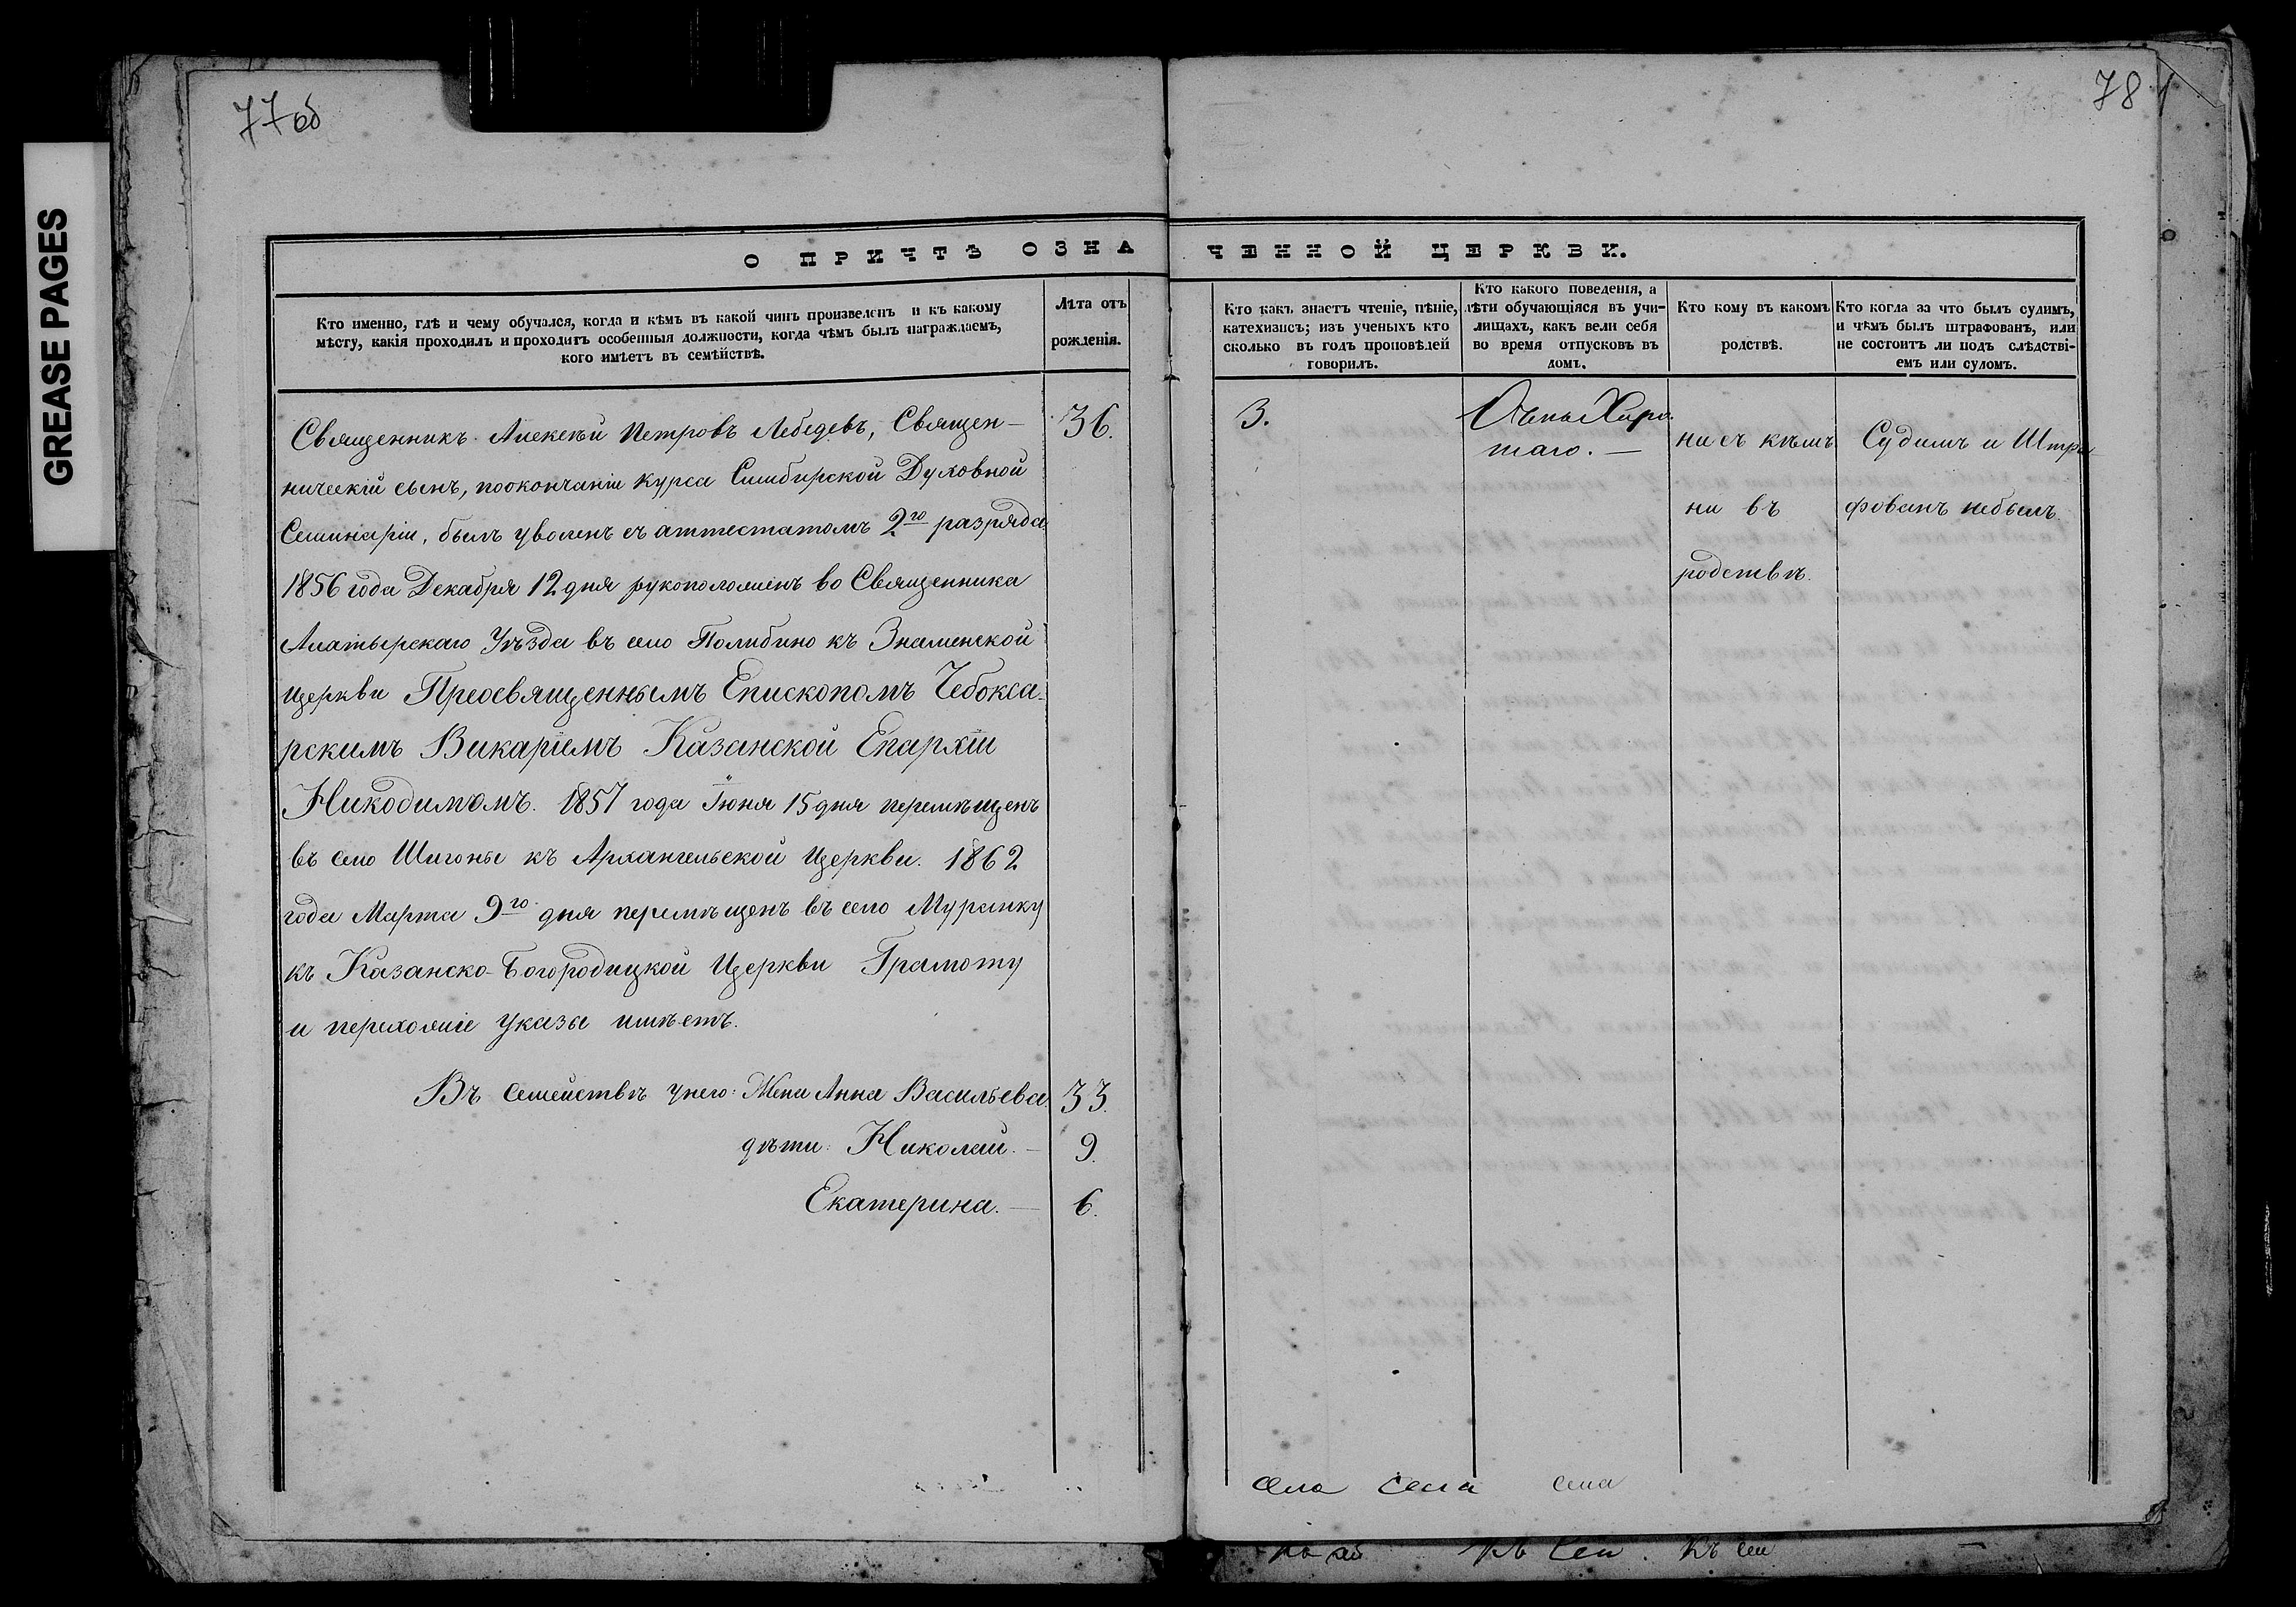 77об
78
GREASE PAGES
О ПРИЧТѢ ОЗНА
ЧЕННОЙ ЦЕРКВИ.
Кто именно, гдѣ и чему обучался, когда и кѣмъ въ какой чинъ произведенъ и къ какому
мѣсту, какія проходилъ и проходитъ особенныя должности, когда чѣмъ былъ награждаемъ,
кого имѣетъ въ семѣйствѣ.
Лѣта отъ
рожденія.
Кто какъ знаетъ чтеніе, пѣніе,
катехизисъ; изъ ученыхъ кто
сколько въ годъ проповѣдей
говорилъ.
Кто какого поведенія, а
дѣти обучающіяся въ учи-
лищахъ, какъ вели себя
во время отпусковъ въ
домъ.
Кто кому въ какомъ
родствѣ.
Кто когда за что былъ судимъ,
и чѣмъ былъ штрафованъ, или
не состоитъ ли подъ слѣдстві-
емъ или судомъ.
Священникъ Алексѣй Петровъ Лебедевъ, Священ- 36.
ническій сынъ, поокончаніи курса Симбирской Духовной
Семинаріи, былъ уволенъ съ аттестатомъ 2го разряда
1856 года Декабря 12 дня рукоположенъ во Священника
Алатырскаго Уѣзда въ село Полибино къ Знаменской
церкви Преосвященнымъ Епископомъ Чебокса-
рскимъ Викаріемъ Казанской Епархіи
Никодимомъ. 1857 года Іюня 15 дня перемѣщенъ
въ село Шигоны къ Архангельской Церкви. 1862
года Марта 9го дня перемѣщенъ въ село Муранку
къ Казанско-Богородицкой Церкви Грамоту
и перехожіе указы имѣетъ.
Въ семействѣ унего: Жена Анна Васильева 33.
дѣти: Николай. — 9.
Екатерина. — 6.
3.
таго. —
ни съ кѣмъ
ни въ
родствѣ.
Судимъ и Штра
фованъ небылъ.
села села села